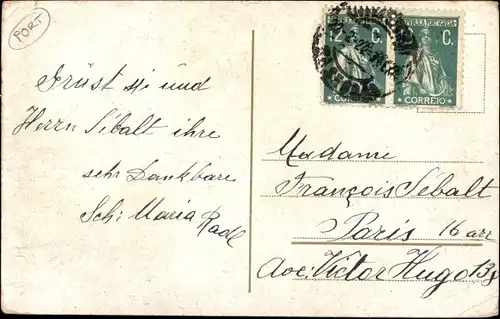 PORT
PVBLICA PORTVGVESA
12 C.
CORREIO
C.
CORREIO
Grüst sie und
Herrn Sebalt ihre
sehr Dankbare
Sch: Maria Radl
Madame
François Sebalt
Paris 16 arr
Ave: Victor Hugo